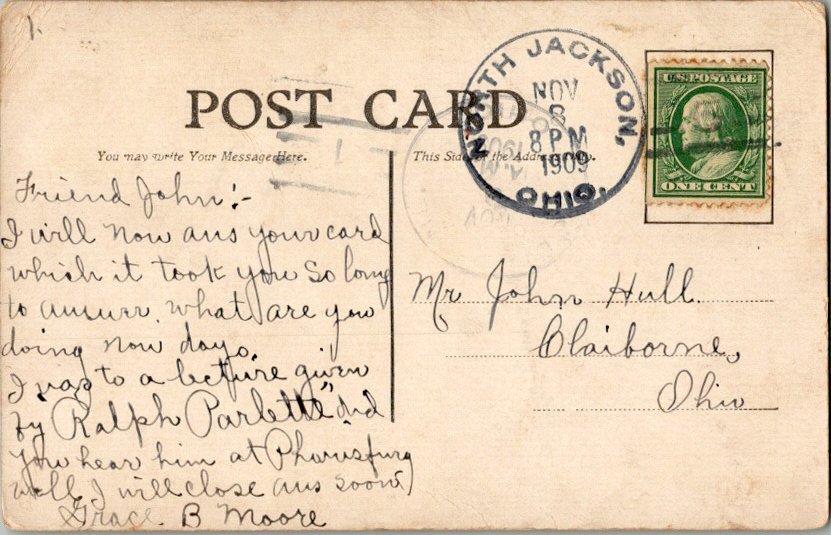 POST CARD
You may write Your Message Here.
This Side for the Address Only.
NORTH JACKSON,
NOV
8
8 PM
1909
OHIO.
U.S. POSTAGE
ONE CENT
Friend John:-
I will now ans your card
which it took you so long
to answer. what are you
doing now days.
I was to a lecture given
by Ralph Parlette "did
you hear him at Pharisfurg
well I will close ans soon)
Grace B Moore
Mr John Hull.
Claiborne,
Ohio